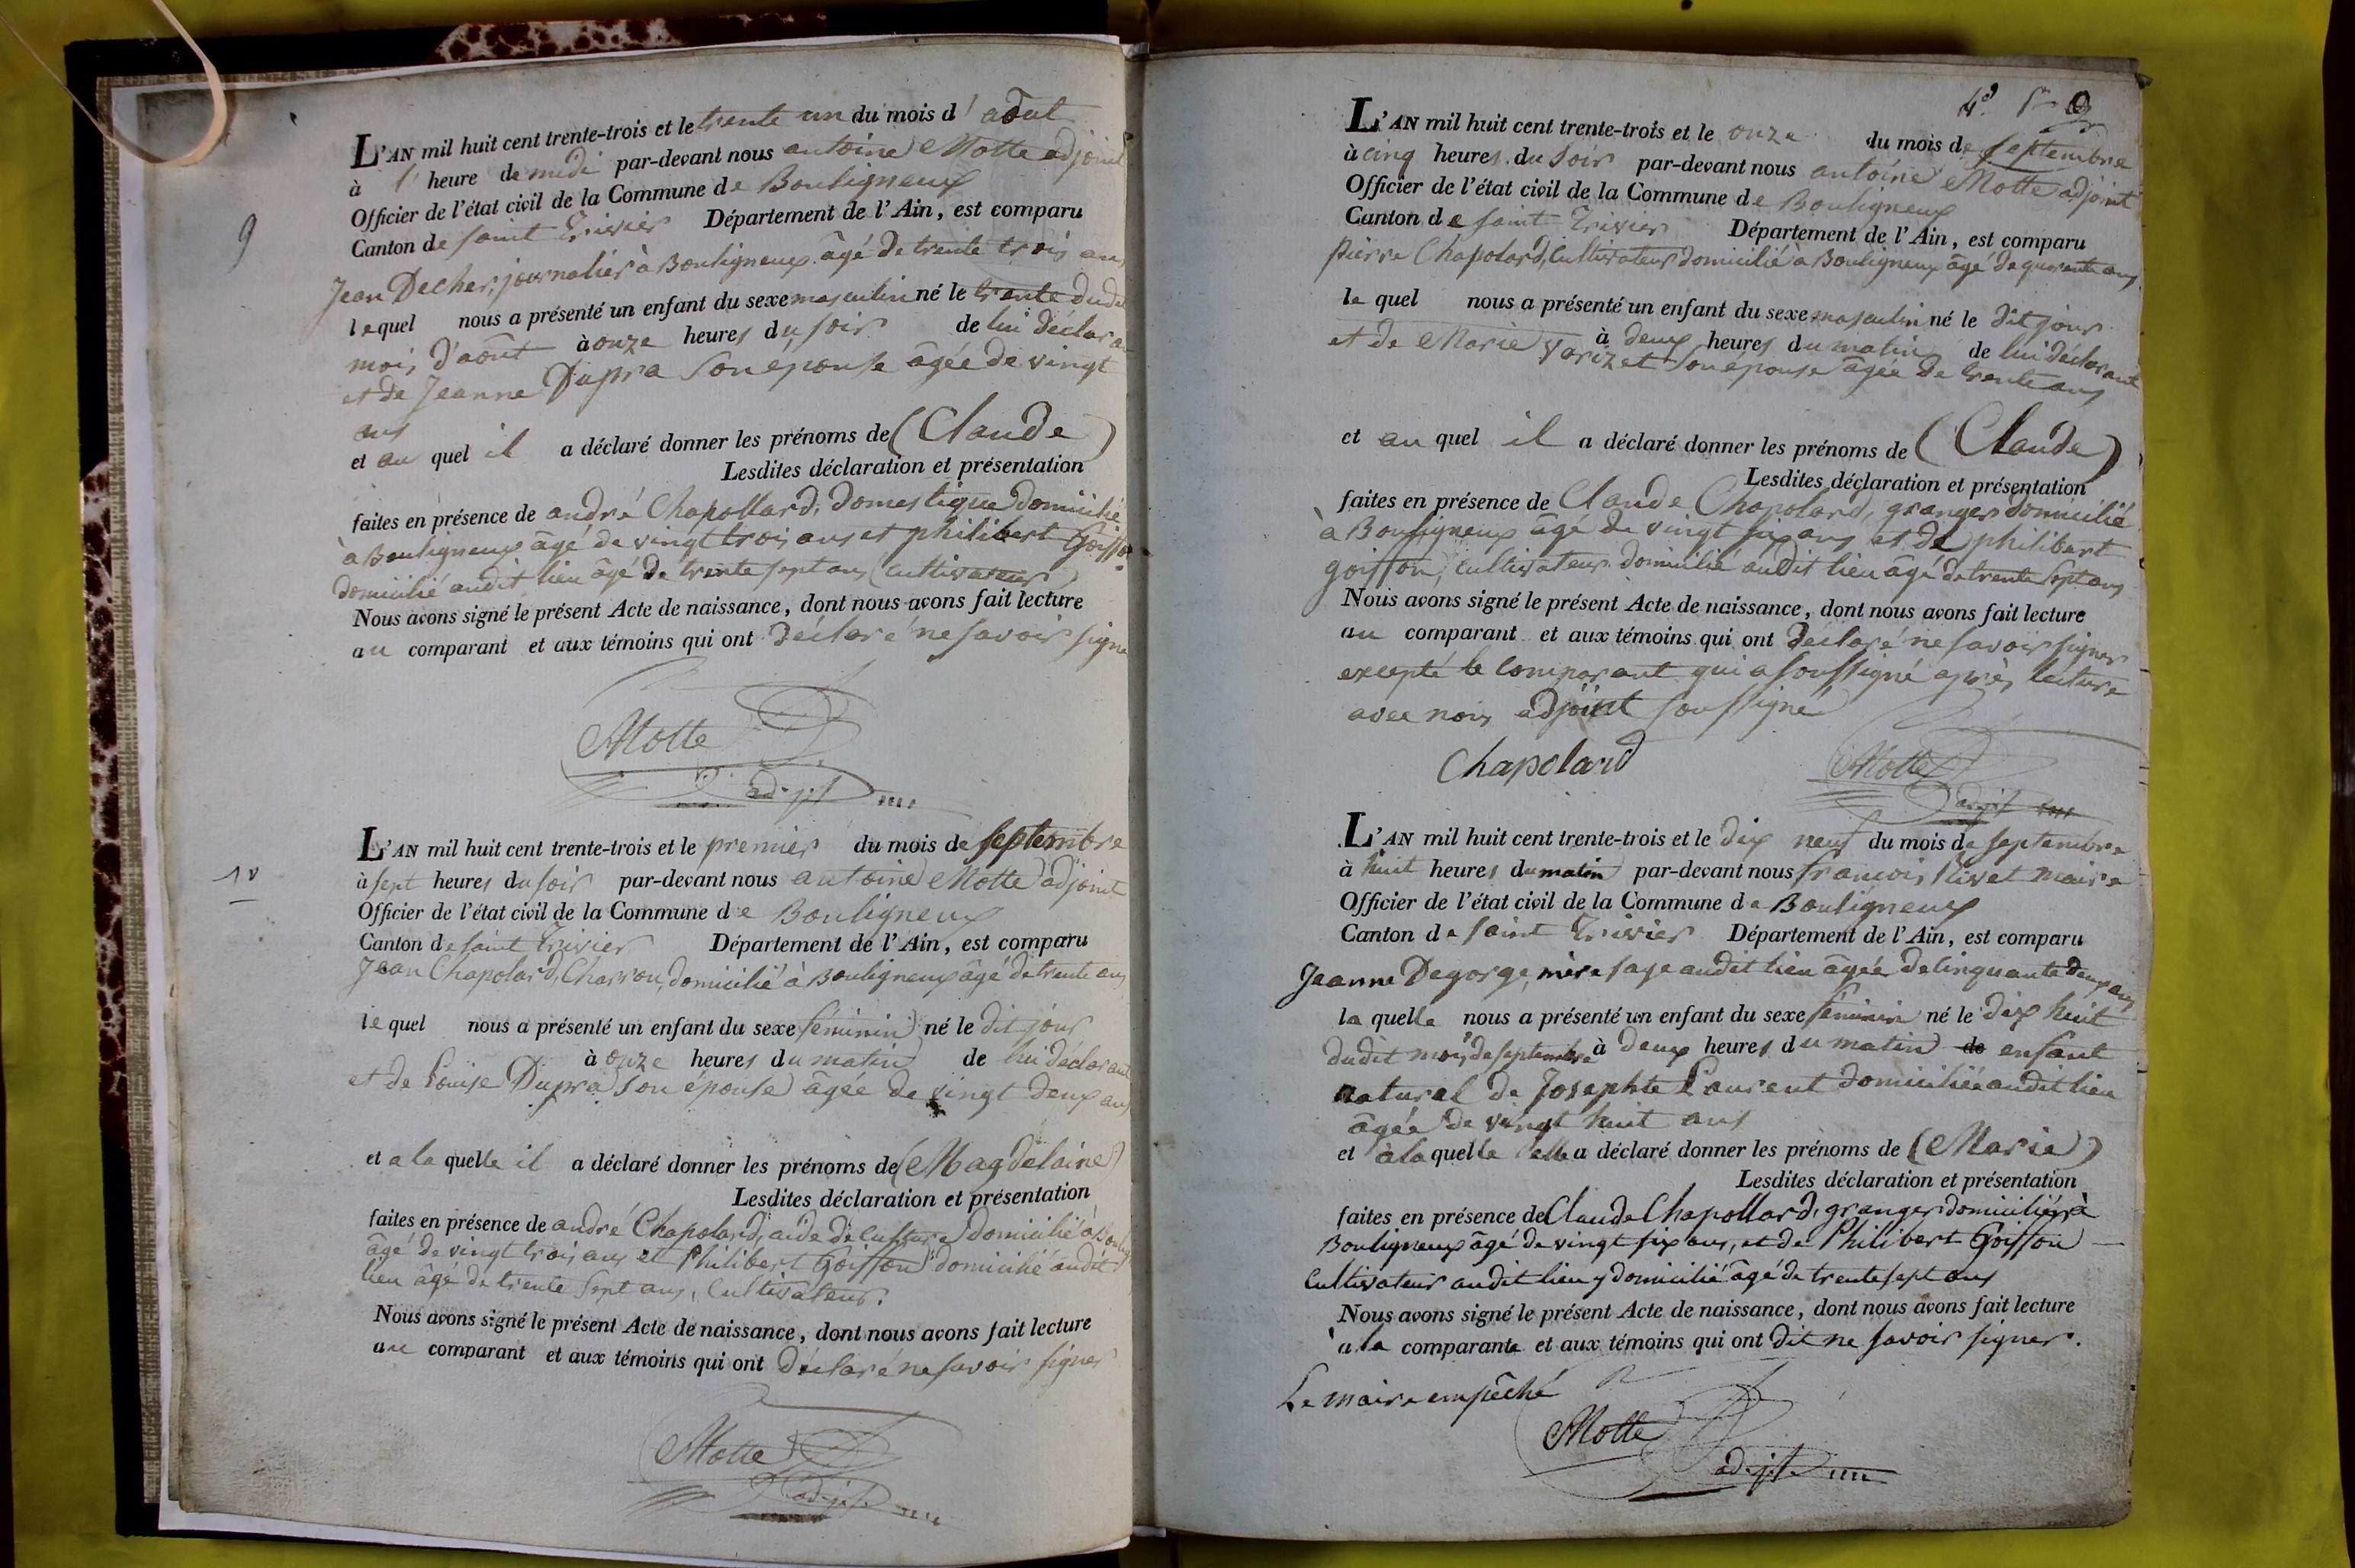 9
L'AN mil huit cent trente-trois et le trente un du mois d'août
à 1 heure de midi par-devant nous antoine Motte adjoint
Officier de l'état civil de la Commune de Bouligneux
Canton de saint Trivier Département de l'Ain, est comparu
Jean Decher, journalier à Bouligneux âgé de trente trois ans
lequel nous a présenté un enfant du sexe masculin né le trente dudit
mois d'août à onze heures du soir de lui déclarant
et de Jeanne Dupra son épouse âgée de vingt
ans
et au quel il a déclaré donner les prénoms de (Claude)
Lesdites déclaration et présentation
faites en présence de andré Chapollard, domestique domicilié
à Bouligneux âgé de vingt trois ans et philibert Goisson
domicilié audit lieu âgé de trente sept ans (cultivateur)
Nous avons signé le présent Acte de naissance, dont nous avons fait lecture
au comparant et aux témoins qui ont déclaré ne savoir signer
Motte
adjt
10
L'AN mil huit cent trente-trois et le premier du mois de septembre
à sept heures du soir par-devant nous antoine Motte adjoint
Officier de l'état civil de la Commune de Bouligneux
Canton de saint Trivier Département de l'Ain, est comparu
Jean Chapolard, Charron, domicilié à Bouligneux âgé de trente ans
lequel nous a présenté un enfant du sexe féminin né le dit jour
à onze heures du matin de lui déclarant
et de Louise Dupra son épouse âgée de vingt deux ans
et a la quelle il a déclaré donner les prénoms de (Magdelaine)
Lesdites déclaration et présentation
faites en présence de andré Chapolard, aide de culture domicilié à Boulig
âgé de vingt trois ans et Philibert Goisson domicilié audit
lieu âgé de trente sept ans, cultivateur.
Nous avons signé le présent Acte de naissance, dont nous avons fait lecture
au comparant et aux témoins qui ont déclaré ne savoir signer
Motte
adjt
L'AN mil huit cent trente-trois et le onze du mois de septembre
à cinq heures du soir par-devant nous antoine Motte adjoint
Officier de l'état civil de la Commune de Bouligneux
Canton de saint Trivier Département de l'Ain, est comparu
pierre Chapolard, Cultivateur domicilié à Bouligneux âgé de quarante ans
le quel nous a présenté un enfant du sexe masculin né le dit jour
à deux heures du matin de lui déclarant
et de Marie Varizet son épouse âgée de trente ans
et au quel il a déclaré donner les prénoms de (Claude)
Lesdites déclaration et présentation
faites en présence de Claude Chapolard, granger domicilié
à Bouligneux âgé de vingt six ans et de philibert
goisson, cultivateur domicilié audit lieu âgé de trente sept ans
Nous avons signé le présent Acte de naissance, dont nous avons fait lecture
au comparant et aux témoins qui ont déclaré ne savoir signer
excepté le comparant qui a soussigné après lecture
avec nous adjoint soussigné
Chapolard Motte
adjt
L'AN mil huit cent trente-trois et le dix neuf du mois de septembre
à huit heures du matin par-devant nous françois Rivet maire
Officier de l'état civil de la Commune de Bouligneux
Canton de saint Trivier Département de l'Ain, est comparu
Jeanne Degorge, mère sage audit lieu âgée de cinquante deux ans
la quelle nous a présenté un enfant du sexe féminin né le dix huit
dudit mois de septembre à deux heures du matin de enfant
naturel de Josephte Laurent domiciliée audit lieu
âgée de vingt huit ans
et à la quelle elle a déclaré donner les prénoms de (Marie)
Lesdites déclaration et présentation
faites en présence de Claude Chapollard, granger domicilié à
Bouligneux âgé de vingt six ans, et de Philibert Goisson
Cultivateur audit lieu y domicilié âgé de trente sept ans
Nous avons signé le présent Acte de naissance, dont nous avons fait lecture
à la comparante et aux témoins qui ont dit ne savoir signer.
Le maire empêché
Motte
adjt